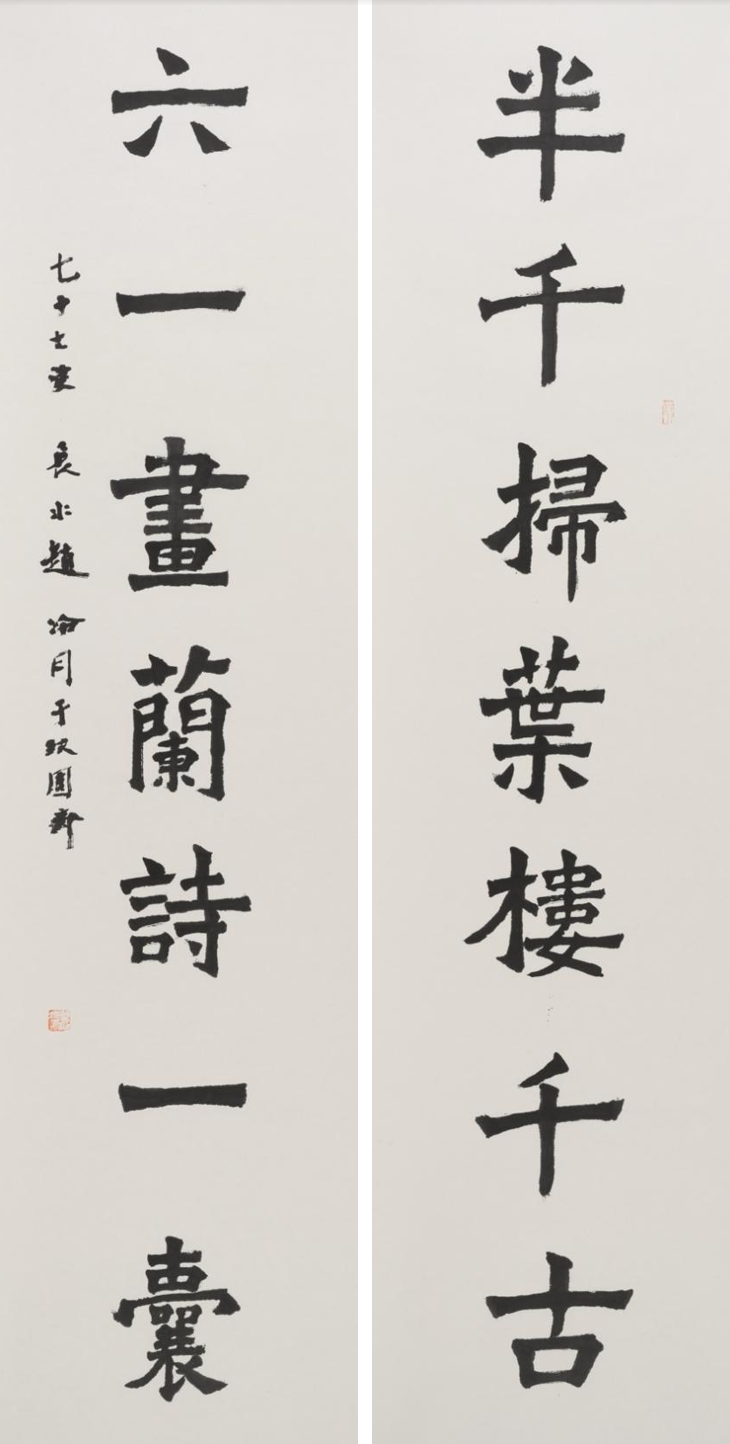 半千掃葉樓千古
六一畫蘭詩一囊
七十七叟 水趙冷月于缺圓齋